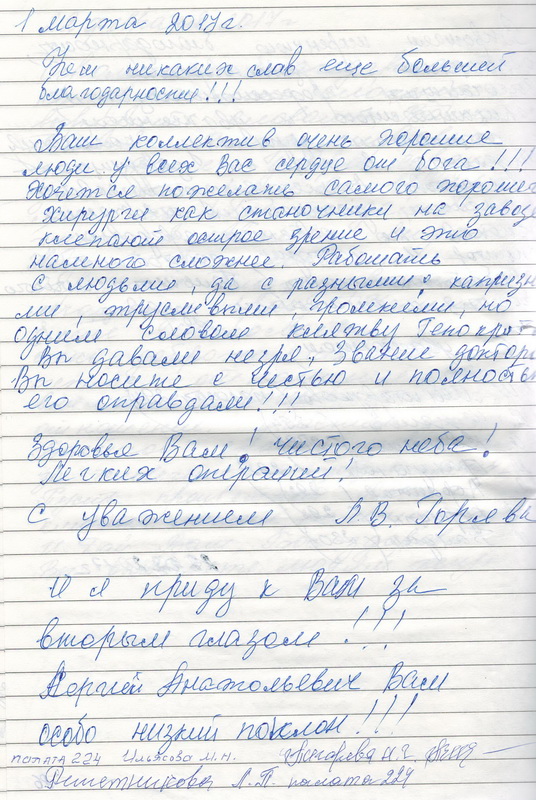 1 марта 2017г.
Нет никаких слав еще большей
благодарности!!!
Ваш коллектив очень хорошие
люди у всех Вас сердце от бога!!!
Хочется пожелать самого хорошег
хирурги как станочники на заводе
клепают острое зрение и это
намного сложнее. Работать
с людьми, да с разными: капризн
ми, трусливыми, громкими, но
одним словом клятву Гепократ
Вы давали незря. Звание доктора
Вы носите с честью и полность
его оправдали!!!
Здоровья Вам! чистого неба!
Легких операций!
С уважением Л.В.
И я приду к Вам за
вторым глазом!!!
Сергей Анатольевич Вам
особо низкий поклон!!!
палата 224 Ильясова М.Н.
Решетникова Л.П. палата 224